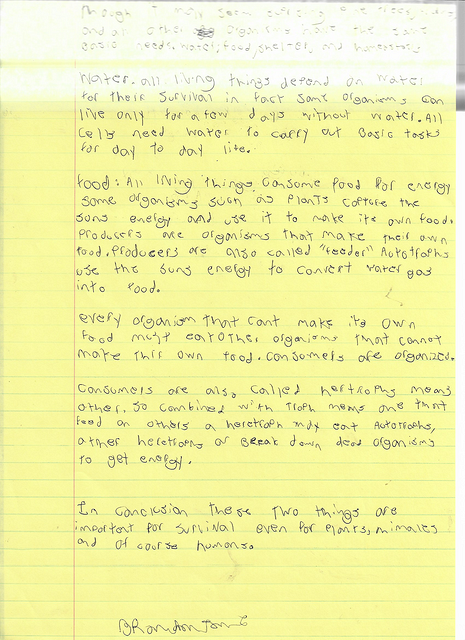 though may seem
and all other organisms have the same
basic needs. water, food, shelter, and homeostasis
Water. all living things depend on water
for their survival in fact some organisms can
live only for a few days without water. All
cells need water to carry out basic tasks
for day to day life.
food: All living things consome food for energy
some organisms such as plants capture the
suns energy and use it to make its own food.
Producers are organisms that make their own
food. producers are also called "feeder" Autotrophs
use the suns energy to convert water gas
into food.
every organism that cant make its own
food must eat other organisms that cannot
make thir own food. consomers are organized.
Consumers are also called hertrophs means
other. so combined with troph mens one that
feed on others a heretroph may eat Autotrophs,
other heretrophs or Break down dead organisms
to get energy.
In conclusion these two things are
important for survival even for plants, mimales
and of course humans.